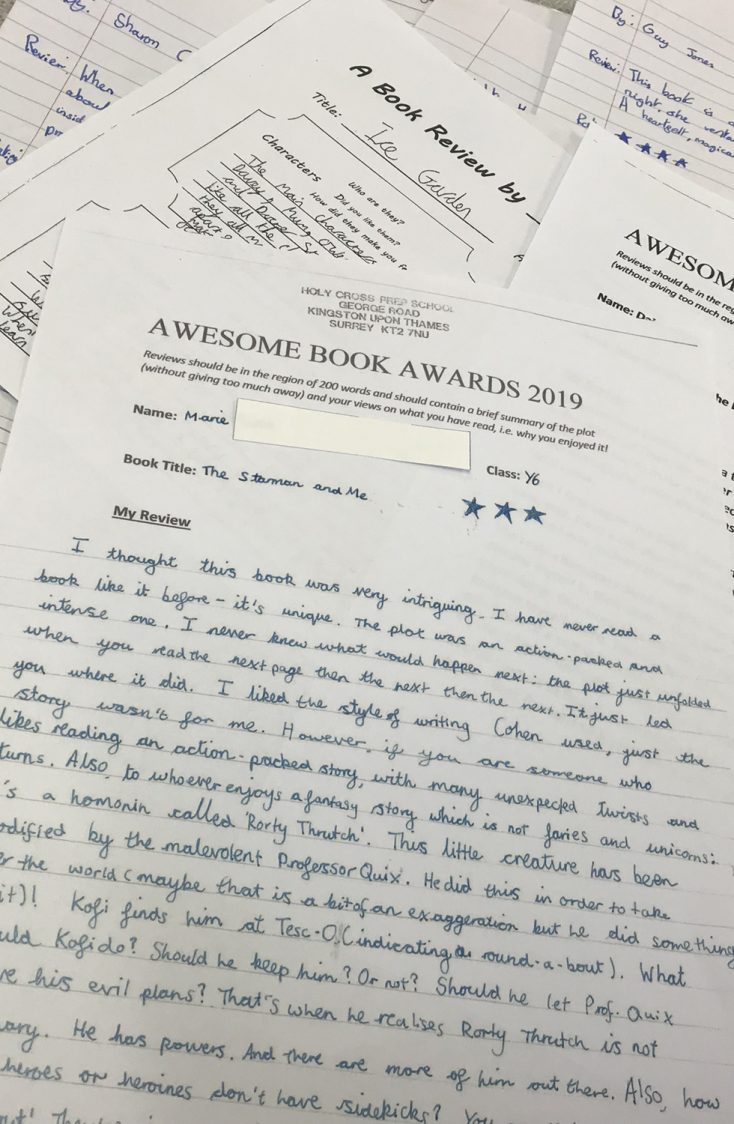 Sharon C
Review: When
about
insid
By: Guy Jones
Review: This book is a
night, she
A heartfelt, magica
A Book Review by
Title: Ice Garden
Characters
Who are they?
Did you like them?
How did they make you f
The main characters
and
like all the
they all
AWESOM
Reviews should be in the reg
(without giving too much aw
Name: Da
HOLY CROSS PREP SCHOOL
GEORGE ROAD
KINGSTON UPON THAMES
SURREY KT2 7NU
AWESOME BOOK AWARDS 2019
Reviews should be in the region of 200 words and should contain a brief summary of the plot
(without giving too much away) and your views on what you have read, i.e. why you enjoyed it!
Name: Marie
Class: Y6
Book Title: The Starman and Me
My Review
I thought this book was very intriguing. I have never read a
book like it before - it's unique. The plot was an action-packed and
intense one. I never knew what would happen next: the plot just unfolded
when you read the next page then the next then the next. It just led
you where it did. I liked the style of writing Cohen used, just the
story wasn't for me. However, if you are someone who
likes reading an action-packed story, with many unexpected twists and
turns. Also, to whoever enjoys a fantasy story which is not faries and unicorns:
's a homonin called 'Rorty Thrutch'. This little creature has been
odified by the malevolent Professor Quix. He did this in order to take
er the world (maybe that is a bit of an exaggeration but he did something
it)! Kofi finds him at Tesc-O (indicating a round-a-bout). What
uld Kofi do? Should he keep him? Or not? Should he let Prof. Quix
ve his evil plans? That's when he realises Rorty Thrutch is not
nary. He has powers. And there are more of him out there. Also, how
heroes or heroines don't have sidekicks? You